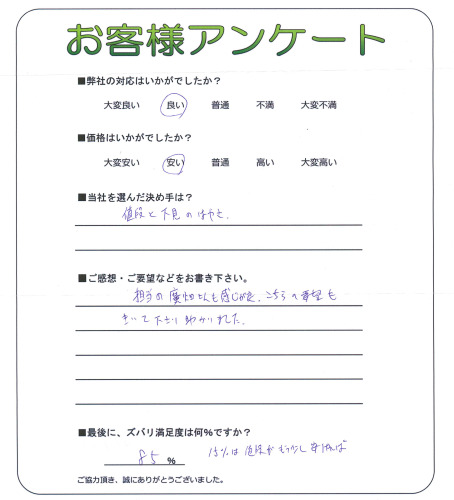 お客様アンケート
■弊社の対応はいかがでしたか?
大変良い 良い 普通 不満 大変不満
■価格はいかがでしたか?
大変安い 安い 普通 高い 大変高い
■当社を選んだ決め手は?
値段と下見のはやさ.
■ご感想・ご要望などをお書き下さい。
担当の廣畑さんも感じが良く、こちらの希望も
きいて下さり助かりました.
■最後に、ズバリ満足度は何%ですか?
85 % 15%は値段がもう少し安ければ
ご協力頂き、誠にありがとうございました。